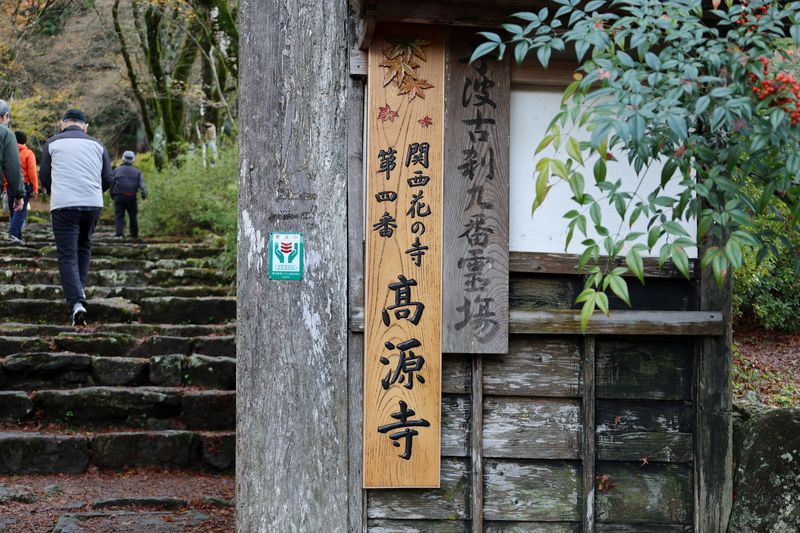 丹波古刹九番霊場
関西花の寺
第四番
高源寺